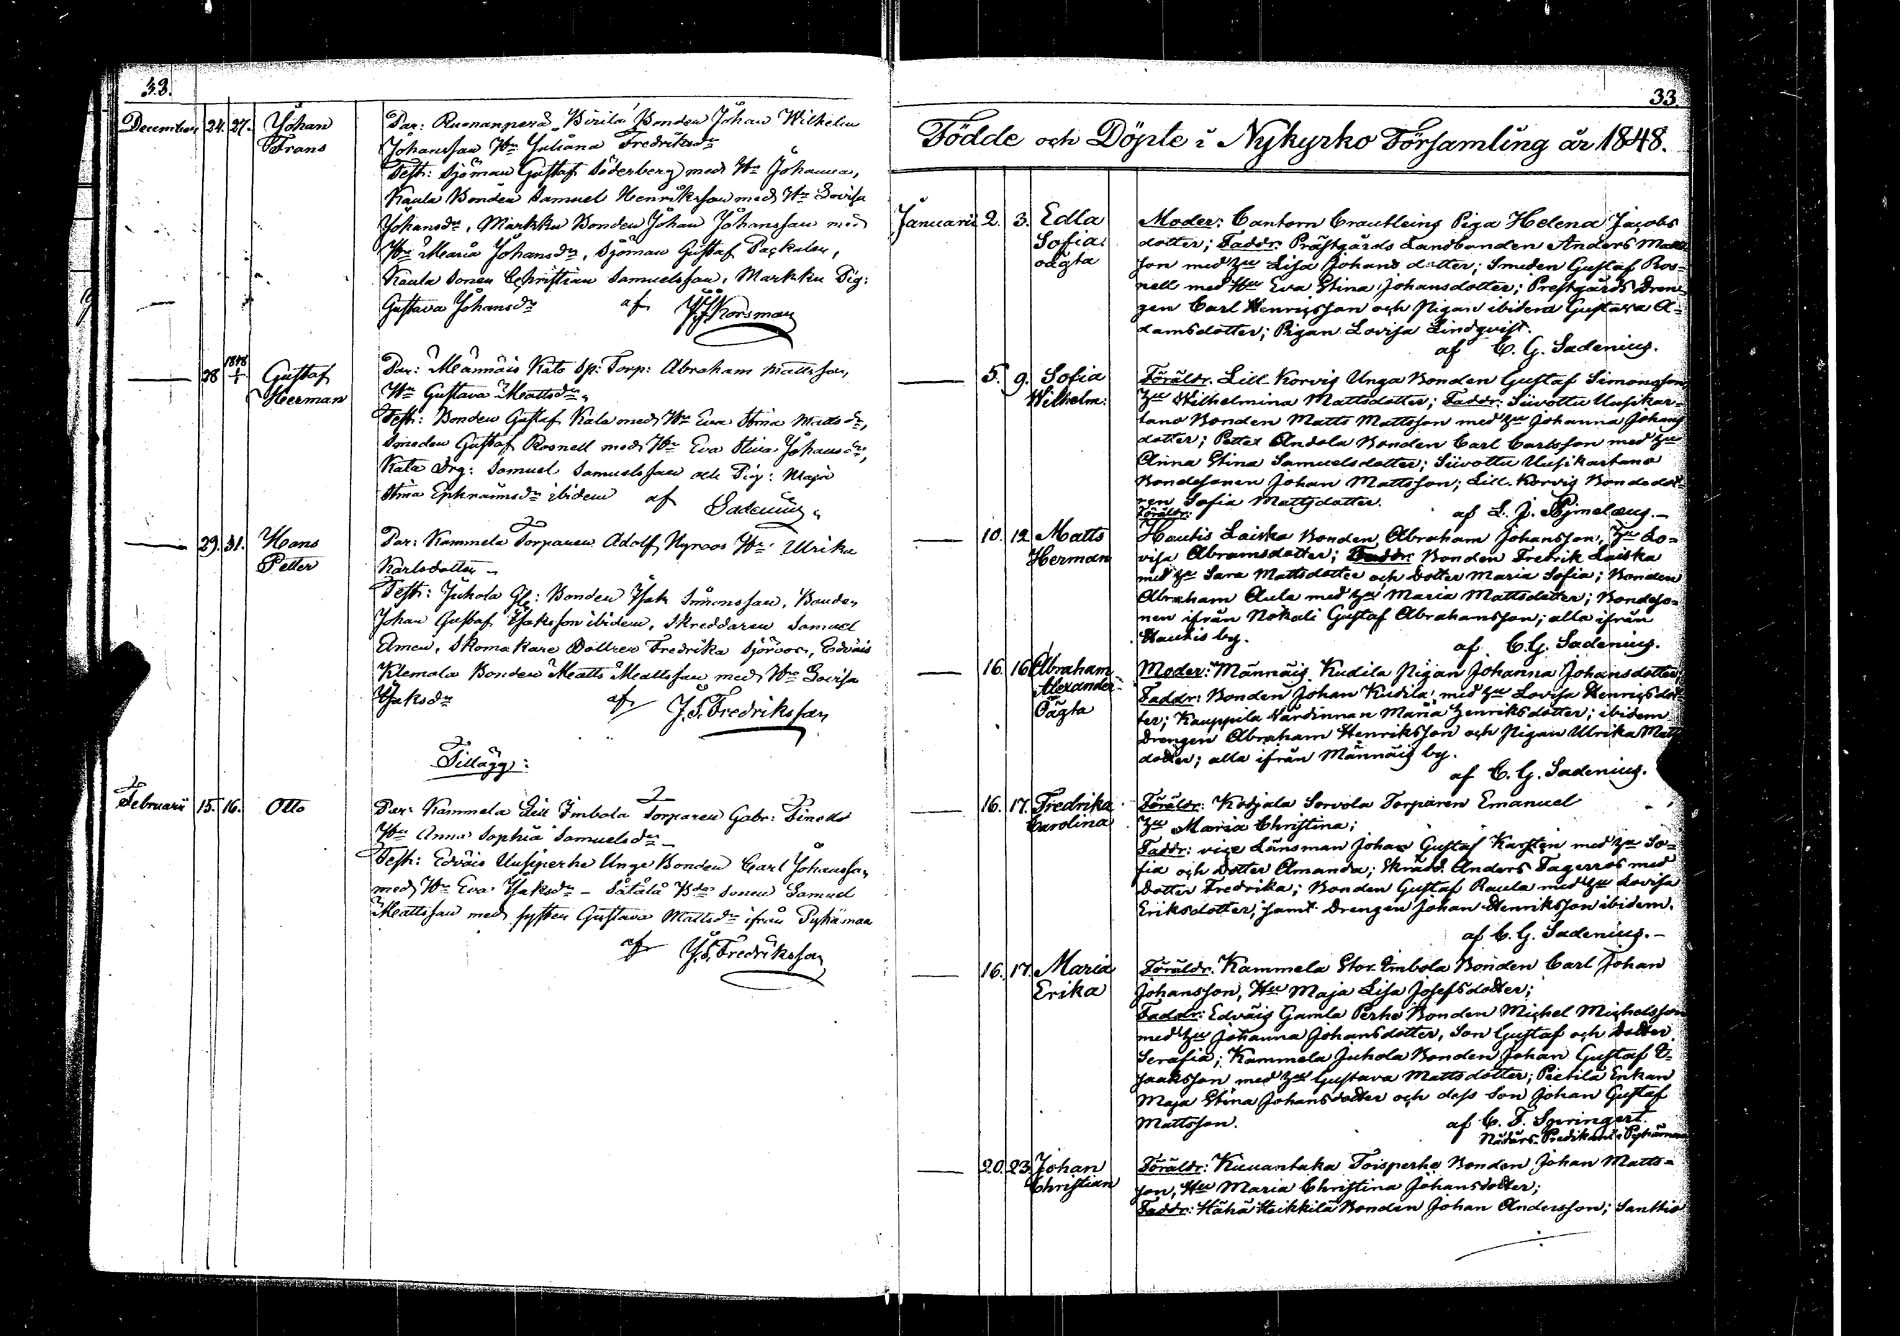 33.
Decembris 24. 27. Johan Par: Ruonanperä Birilä Bonden Johan Wilhelm
Frans Johansson Hu Juliana Fredriksdr
Test: Sjöman Gustaf Söderberg med Hu Johanna,
Kaula Bonden Samuel Henriksson med Hu Lovisa
Johansdr, Markku Bonden Johan Johansson med
Hu Maria Johansdr, Sjöman Gustaf
Kaula Sonen Christian Samuelsson, Markku Pig:
Gustava Johansdr af Korsman
— 28 1848 1/1 Gustaf Par: Männäis Kato Torp: Abraham Mattsson,
Herman Hu Gustava Mattsdr,
Test: Bonden Gustaf Kala med Hu Eva Stina Mattsdr,
Smeden Gustaf Rosnell med Hu Eva Stina Johansdr,
Kala Drg: Samuel Samuelsson och Pig: Maja
Stina Ephraimsdr ibidem af Sadenius
— 29. 31. Hans Par: Kammela Torparen Adolf Nyroos Hu Ulrika
Petter Karlsdotter –
Test: Juhola Bonden Isak Simonsson, Bonden
Johan Gustaf Isaksson ibidem, Skreddaren Samuel
Skomakare Dottren Fredrika Sjöroos, Edväis
Klemola Bonden Matts Mattsson med Hu Lovisa
Isaksdr af J. S. Fredriksson
Tillägg:
Februarii 15. 16. Otto Par: Kammela Lill Imbola Torparen Gabr:
Hu Anna Sophia Samuelsdr –
Test: Edväis Uusiperhe Unge Bonden Carl Johansson
med Hu Eva Isaksdr – Sätälä Bde sonen Samuel
Mattsson med systern Gustava Mattsdr ifrån Pyhämaa
af J. S. Fredriksson
33.
Födde och Döpte i Nykyrko Församling år 1848.
Januarii 2. 3. Edla Moder: Cantorn Crautleins Piga Helena Jacobs
Sofia dotter; Faddr: Prästgårds Landbonden Anders Matts
oägta son med hu Lisa Johans dotter; Smeden Gustaf Ros=
nell med Hu Eva Stina Johansdotter; Prestgårds Dren=
gen Carl Henricsson och Pigan ibidem Gustava A=
damsdotter; Pigan Lovisa Lindqvist.
af C. G. Sadenius.
— 5. 9. Sofia Föräldr. Lill Korvis Unga Bonden Gustaf Simonsson,
Wilhelm: Hu Wilhelmina Mattsdotter; Faddr: Siivottu Uusikar=
tano Bonden Matts Mattsson med hu Johanna Johans
dotter; Petter Andola Bonden Carl Carlsson med hu
Anna Stina Samuelsdotter; Siivottu Uusikartano
Bondesonen Johan Mattsson; Lill Korvis Bondedot=
ren Sofia Mattsdotter. af L. J.
Föräldr:
— 10. 12 Matts Hautis Laiska Bonden Abraham Johansson, Hu Lo=
Herman visa Abramsdotter; Faddr: Bonden Fredrik Laiska
med hu Sara Mattsdotter och dotter Maria Sofia; Bonden
Abraham Aula med hu Maria Mattsdotter; Bondeso=
nen ifrån Nokali Gustaf Abrahamsson; alla ifrån
Hautis by. af C. G. Sadenius.
— 16. 16 Abraham Moder: Männäis Kudila Pigan Johanna Johansdotter;
Alexander Faddr: Bonden Johan Kudila med hu Lovisa Henricsdot=
Oägta ter; Kauppila Värdinnan Maria Henriksdotter; ibidem
Drengen Abraham Henriksson och Pigan Ulrika Matts
dotter; alla ifrån Männäis by.
af C. G. Sadenius.
— 16. 17. Fredrika Föräldr: Kodjala Sorvola Torparen Emanuel
Carolina Hu Maria Christina;
Faddr: vice Länsman Johan Gustaf Karsten med hu So=
fia och dotter Amanda; Skrädd. Anders Fagerros med
dotter Fredrika; Bonden Gustaf Raula med hu Lovisa
Eriksdotter, samt Drengen Johan Henriksson ibidem.
af C. G. Sadenius. –
— 16. 17. Maria Föräldr. Kammela Stor Imbola Bonden Carl Johan
Erika Johansson, Hu Maja Lisa Josefsdotter;
Faddr: Edväis Gamla Perhe Bonden Michel Michelsson
med hu Johanna Johansdotter, Son Gustaf och dotter
Serafia; Kammela Juhola Bonden Johan Gustaf I=
saaksson med hu Gustava Mattsdotter; Pietilä Enkan
Maja Stina Johansdotter och dess Son Johan Gustaf
Mattsson. af C. F. Springert.
Nådårs Predikant i Pyhämaa
— 20. 23. Johan Föräldr: Kuuanhaka Toisperhe Bonden Johan Matts=
Christian son, Hu Maria Christina Johansdotter;
Faddr: Hähä Heikkilä Bonden Johan Andersson; Santtio